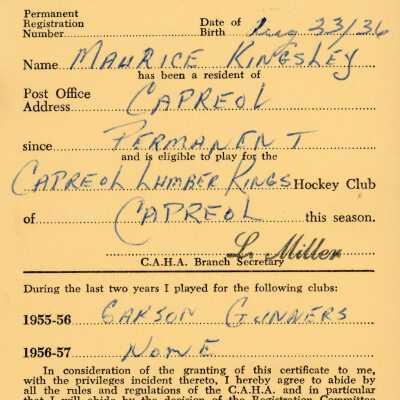 Permanent
Registration Date of
Number Birth Aug 23/36
Name MAURICE KINGSLEY
has been a resident of
Post Office
Address CAPREOL
since PERMANENT
and is eligible to play for the
CAPREOL LUMBER KINGS Hockey Club
of CAPREOL this season.
L. Miller
C.A.H.A. Branch Secretary
During the last two years I played for the following clubs:
1955-56 GARSON GUNNERS
1956-57 NONE
In consideration of the granting of this certificate to me,
with the privileges incident thereto, I hereby agree to abide by
all the rules and regulations of the C.A.H.A. and in particular
that I will abide by the decision of the Registration Committee